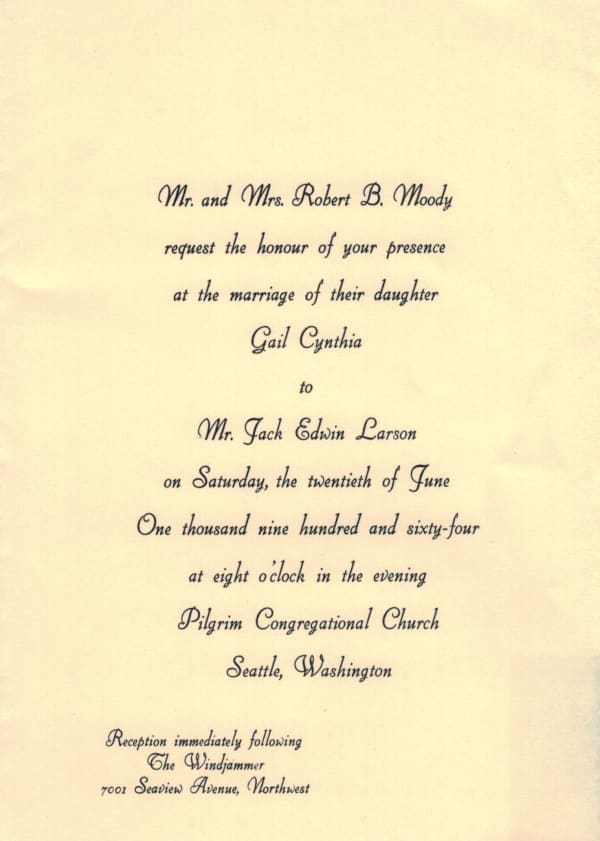 Mr. and Mrs. Robert B. Moody
request the honour of your presence
at the marriage of their daughter
Gail Cynthia
to
Mr. Jack Edwin Larson
on Saturday, the twentieth of June
One thousand nine hundred and sixty-four
at eight o'clock in the evening
Pilgrim Congregational Church
Seattle, Washington
Reception immediately following
The Windjammer
7001 Seaview Avenue, Northwest